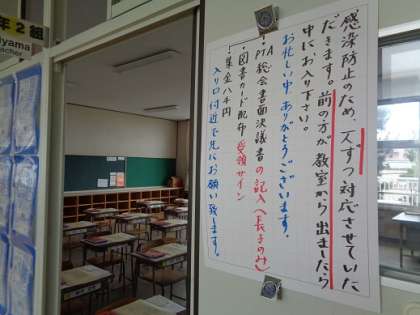 年2組
yama
acher
感染防止のため、一人ずつ対応させていた
だきます。前の方が教室から出ましたら
中にお入り下さい。
お忙しい中 ありがとうございます。
・PTA総会書面決議書の記入(長子のみ)
・図書カード配布 受領サイン
・集金八千円
入り口付近で先にお願い致します。